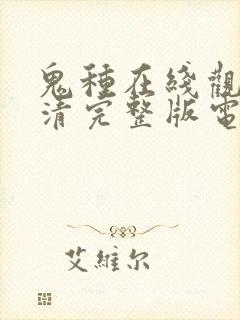 鬼種在綫觀
清完整版電
艾維尔